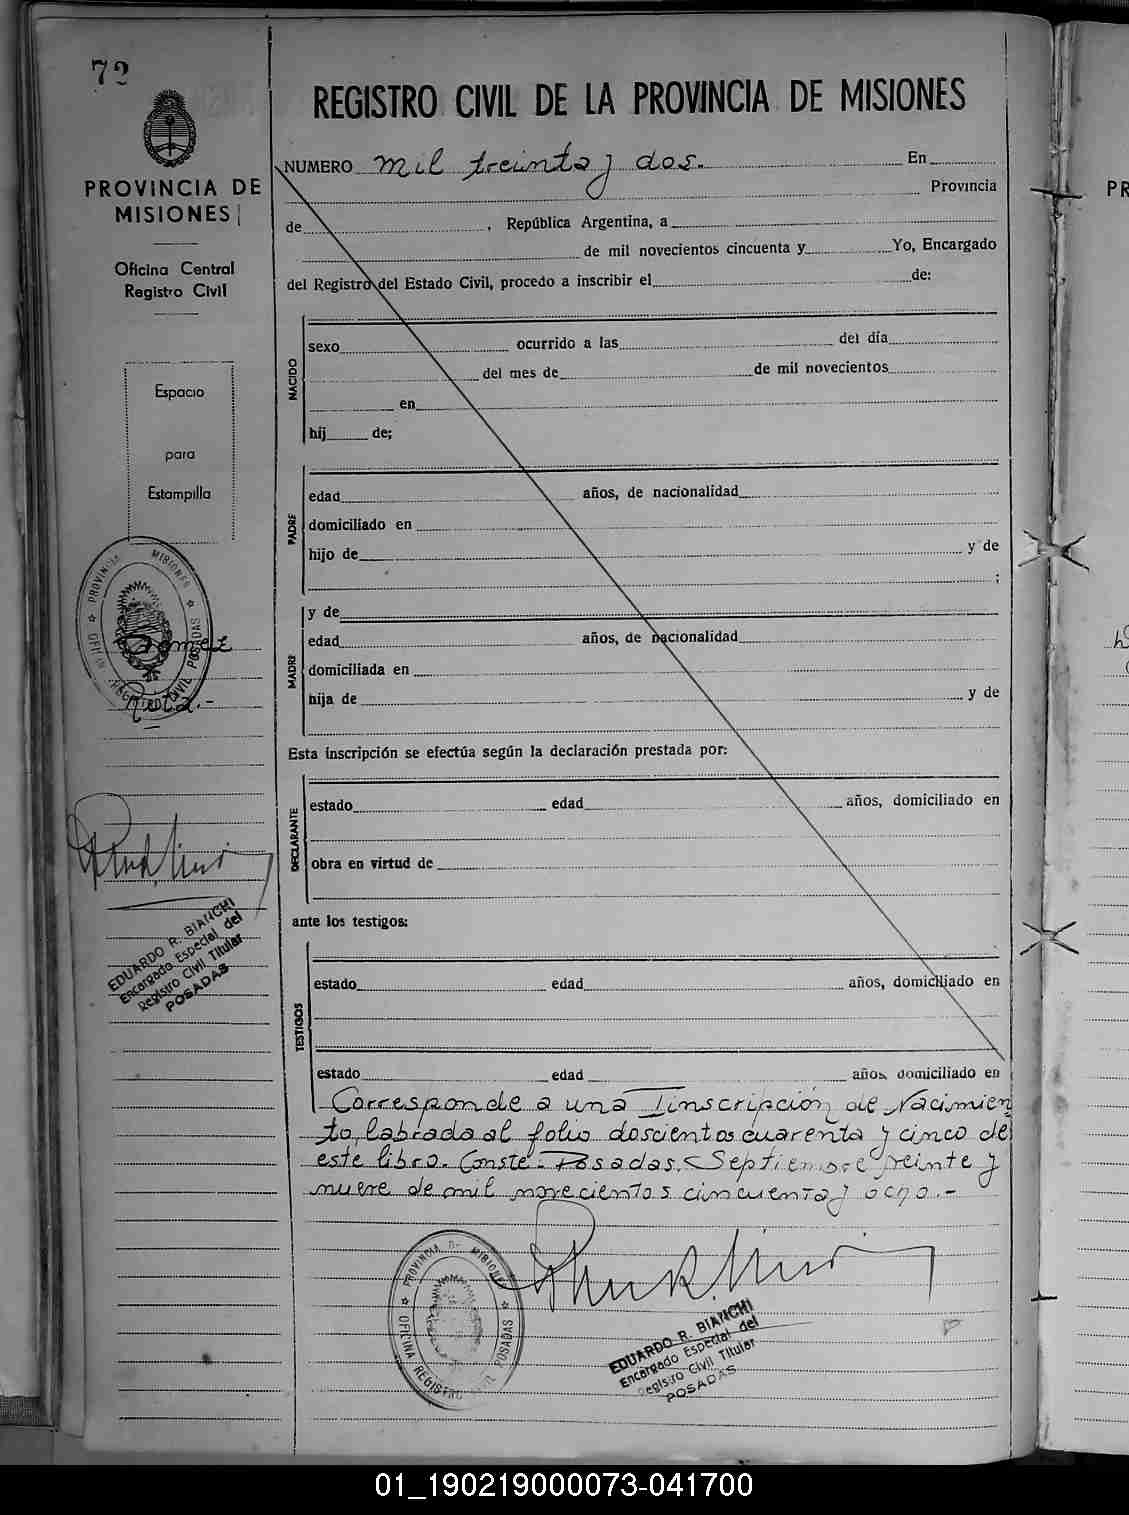 72
PROVINCIA DE
MISIONES
Oficina Central
Registro Civil
Espacio
para
Estampilla
PROVINCIA MISIONES
REGISTRO CIVIL POSADAS
Gomez
Rosa.-
EDUARDO R. BIANCHI
Encargado Especial del
Registro Civil Titular
POSADAS
REGISTRO CIVIL DE LA PROVINCIA DE MISIONES
NUMERO mil treinta y dos. En
Provincia
de , República Argentina, a
de mil novecientos cincuenta y Yo, Encargado
del Registro del Estado Civil, procedo a inscribir el de:
NACIDO
sexo ocurrido a las del día
del mes de de mil novecientos
en
hij de;
PADRE
edad años, de nacionalidad
domiciliado en
hijo de y de
;
MADRE
y de
edad años, de nacionalidad
domiciliada en
hija de y de
Esta inscripción se efectúa según la declaración prestada por:
DECLARANTE
estado edad años, domiciliado en
obra en virtud de
ante los testigos:
TESTIGOS
estado edad años, domiciliado en
estado edad años, domiciliado en
Corresponde a una Iinscripción de Nacimien
to, labrada al folio doscientos cuarenta y cinco de
este libro. Conste: Posadas, Septiembre veinte y
nueve de mil novecientos cincuenta y ocho.-
PROVINCIA DE MISIONES
OFICINA REGISTRO CIVIL POSADAS
EDUARDO R. BIANCHI
Encargado Especial del
Registro Civil Titular
POSADAS
PR
01_190219000073-041700